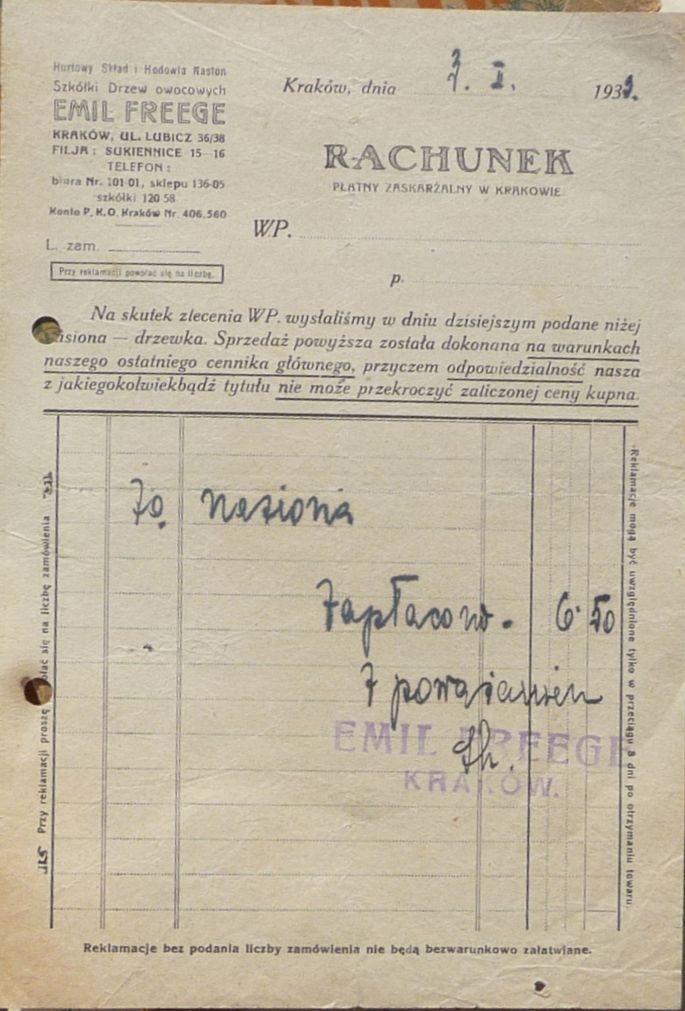 Hurtowy Skład i Hodowla Nasion
Szkółki Drzew owocowych
EMIL FREEGE
KRAKÓW, UL. LUBICZ 36/38
FILJA: SUKIENNICE 15-16
TELEFON:
biura Nr. 101-01, sklepu 136-05
szkółki 120-58
Konto P. K. O. Kraków Nr. 406.560
L. zam.
Przy reklamacji powołać się na liczbę.
Kraków, dnia 7. I. 1933.
RACHUNEK
PŁATNY ZASKARŻALNY W KRAKOWIE
WP.
p.
Na skutek zlecenia WP. wysłaliśmy w dniu dzisiejszym podane niżej
nasiona — drzewka. Sprzedaż powyższa została dokonana na warunkach
naszego ostatniego cennika głównego, przyczem odpowiedzialność nasza
z jakiegokolwiekbądź tytułu nie może przekroczyć zaliczonej ceny kupna.
Przy reklamacji proszę powołać się na liczbę zamówienia
Za nasiona
Zapłacono. 6.50
Z poważaniem
EMIL FREEGE
KRAKÓW.
Reklamacje mogą być uwzględnione tylko w przeciągu 8 dni po otrzymaniu towaru.
Reklamacje bez podania liczby zamówienia nie będą bezwarunkowo załatwiane.